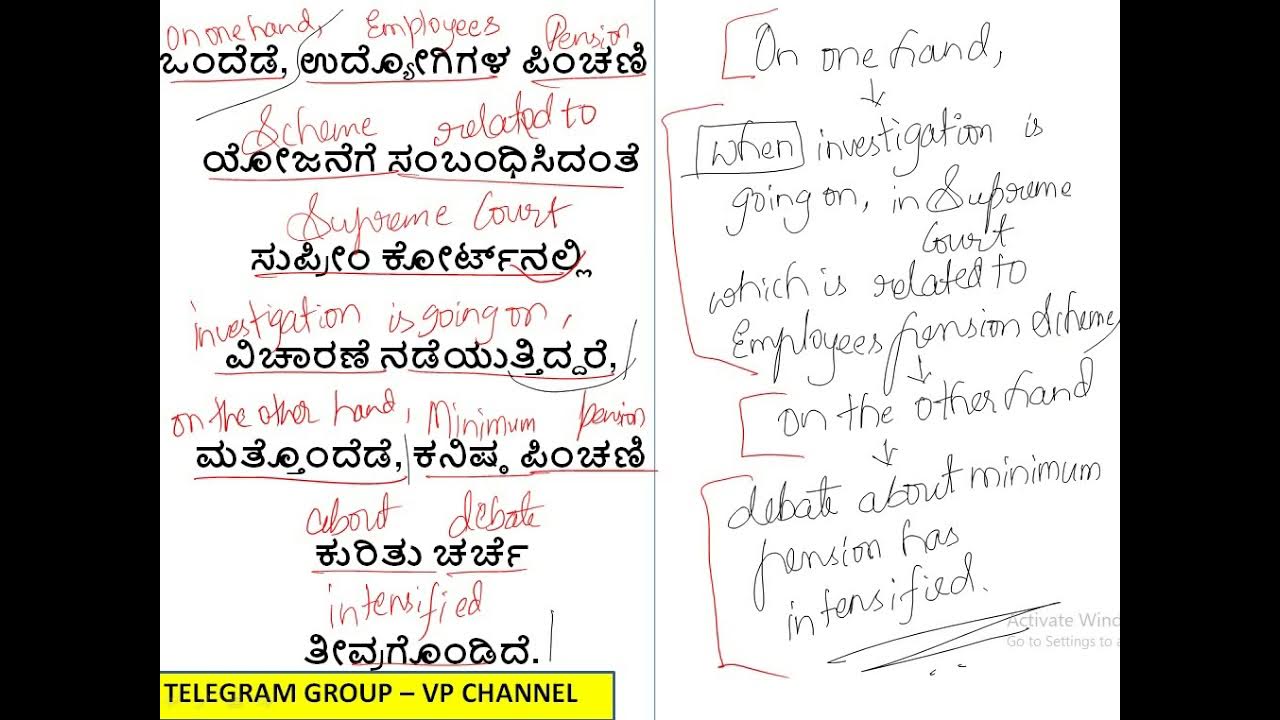 on one hand, Employees Pension
ಒಂದೆಡೆ, ಉದ್ಯೋಗಿಗಳ ಪಿಂಚಣಿ
Scheme related to
ಯೋಜನೆಗೆ ಸಂಬಂಧಿಸಿದಂತೆ
Supreme Court
ಸುಪ್ರೀಂ ಕೋರ್ಟ್‌ನಲ್ಲಿ
investigation is going on,
ವಿಚಾರಣೆ ನಡೆಯುತ್ತಿದ್ದರೆ,
on the other hand, Minimum pension
ಮತ್ತೊಂದೆಡೆ, ಕನಿಷ್ಠ ಪಿಂಚಣಿ
about debate
ಕುರಿತು ಚರ್ಚೆ
intensified
ತೀವ್ರಗೊಂಡಿದೆ.
TELEGRAM GROUP – VP CHANNEL
On one hand,
when investigation is
going on, in Supreme
Court
which is related to
Employees pension Scheme,
on the other hand
debate about minimum
pension has
intensified.
Activate Wind
Go to Settings to a